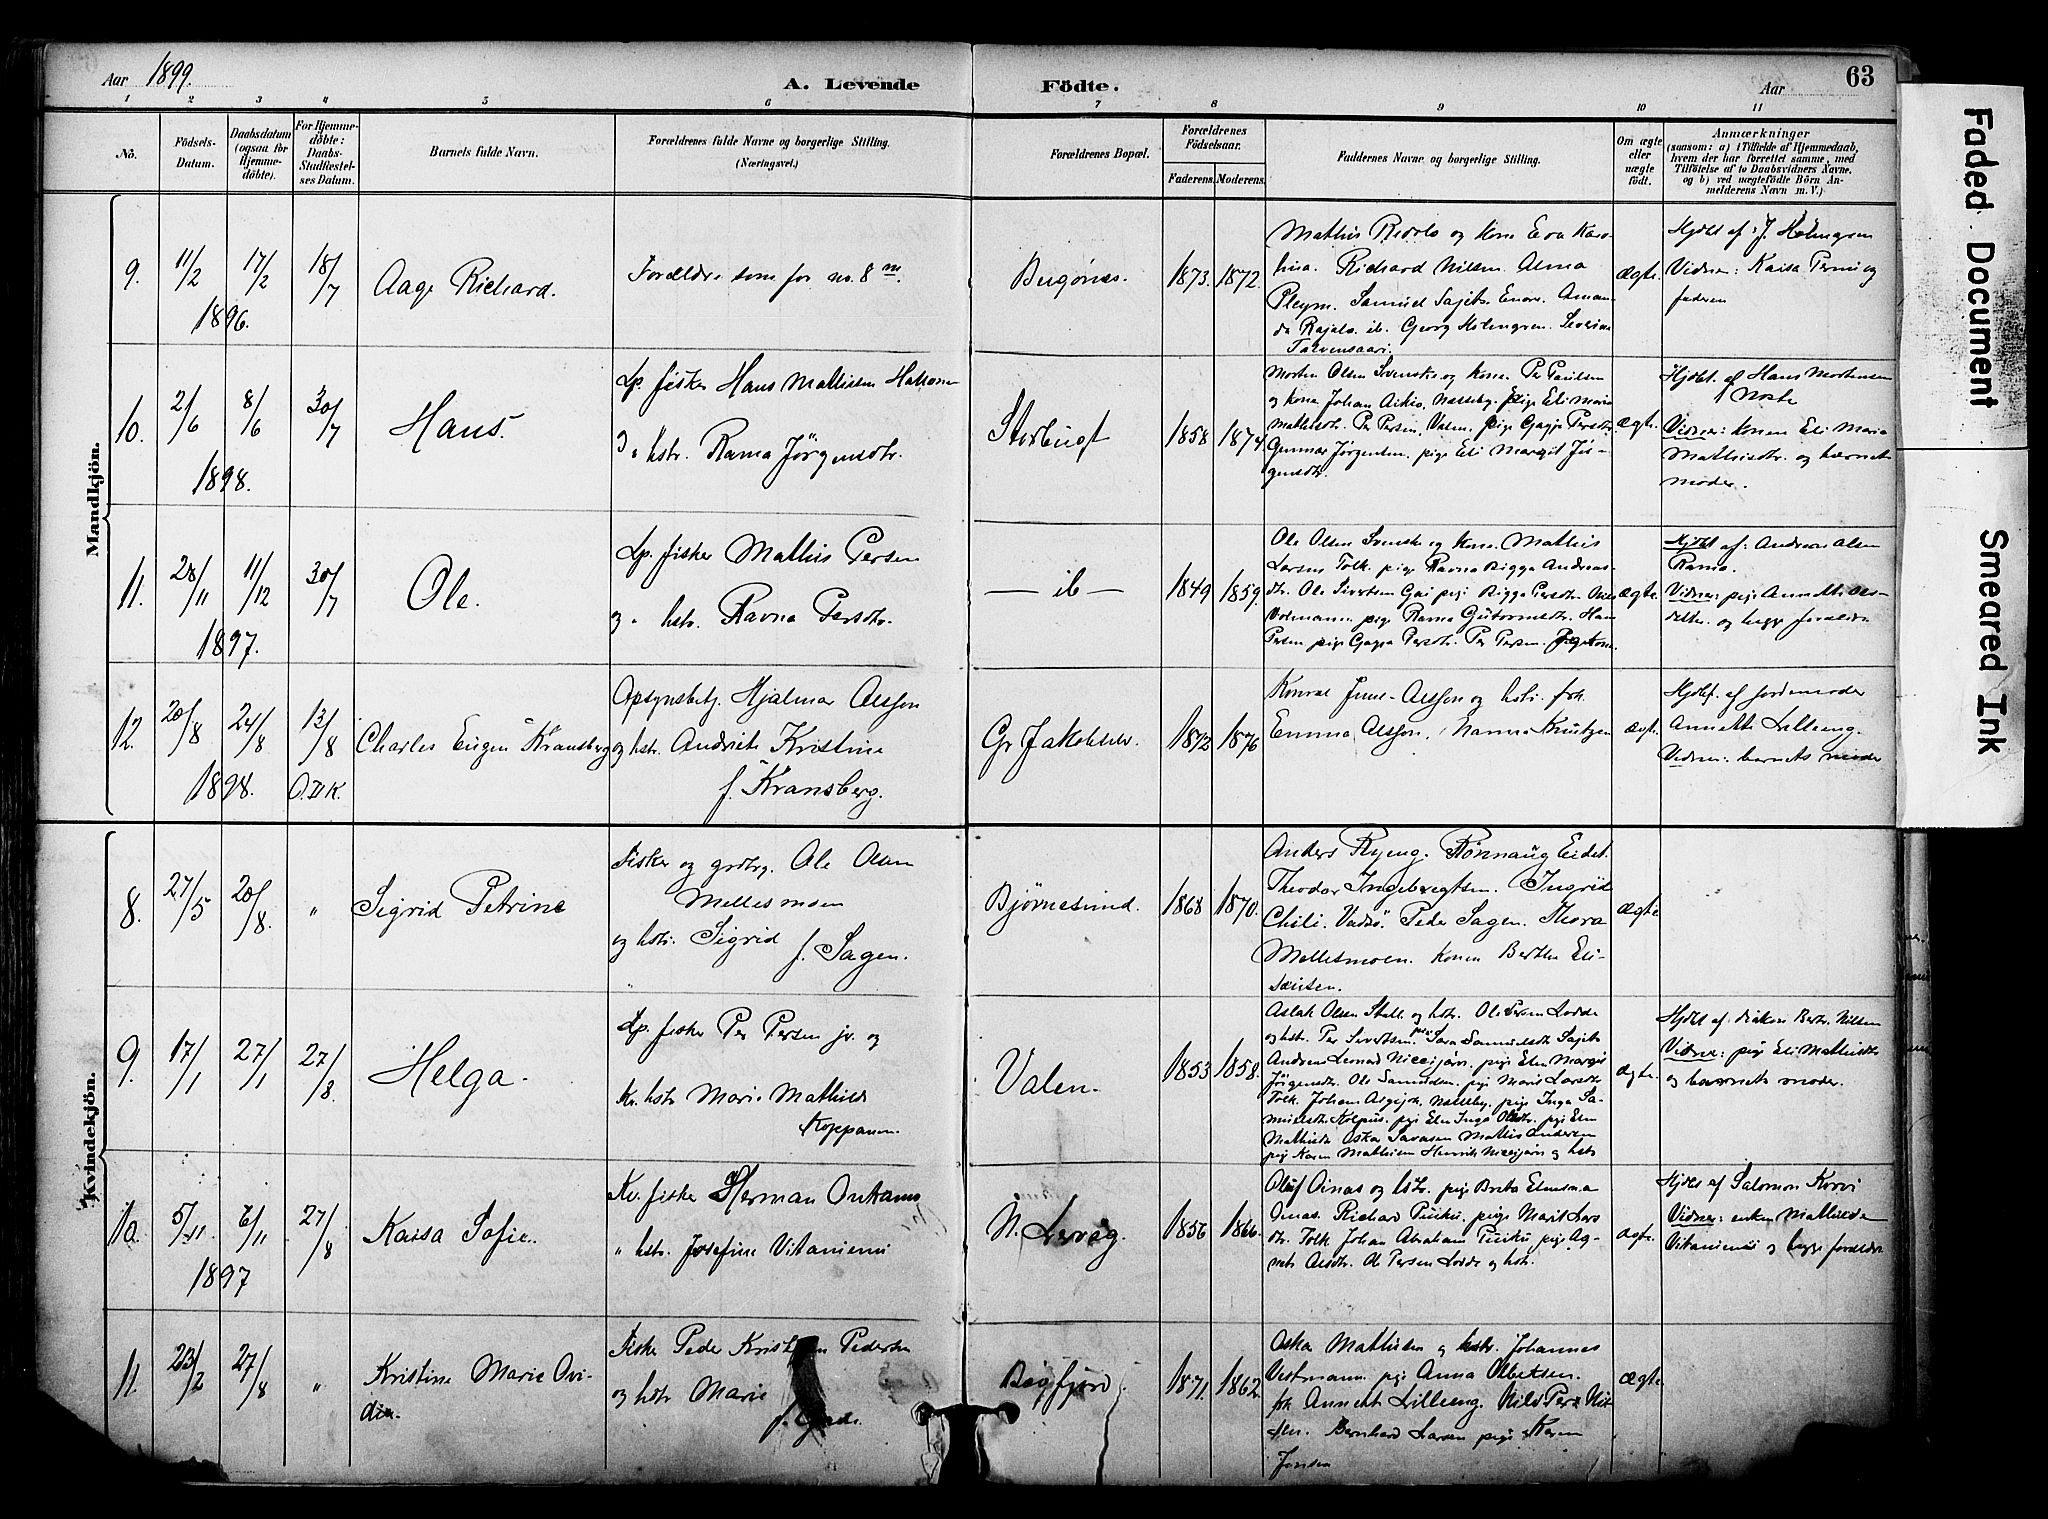 Aar 1899.
A. Levende Födte.
Aar
63
1 2 3 4 5 6 7 8 9 10 11
No.
Födsels-
Datum.
Daabsdatum
(ogsaa for
Hjemme-
döbte).
For Hjemme-
döbte:
Daabs-
Stadfæstel-
ses Datum.
Barnets fulde Navn.
Forældrenes fulde Navne og borgerlige Stilling.
(Næringsvei.)
Forældrenes Bopæl.
Forældrenes
Födselsaar.
Faderens. Moderens.
Faddernes Navne og borgerlige Stilling.
Om ægte
eller
uægte
født.
Anmærkninger
(saasom: a) i Tilfælde af Hjemmedaab,
hvem der har forrettet samme, med
Tilföielse af to Daabsvidners Navne.
og b) ved uægtefödte Börn An-
melderens Navn m. V.)
Mandkjön.
9.
11/2 17/2 18/7
1896.
Aage Richard.
Forældre som for no. 8 m.
Bugönes.
1873. 1872.
og Kone Eva Karo-
lina. Richard Nilsen. Alma
Pleym. Samuel Sajets. Enare. Aman-
da Rajala. ib. Georg Holmgren.
ægte.
Hjdbt af J. Holmgren
Vidner: Kaisa og
faderen
10.
2/6 8/6 30/7
1898.
Hans.
Lp. fisker Hans Mathisen
" hstr. Ravna Jörgensdtr.
Storbugt
1858 1874.
Morten Olsen Svenske og Kone. Per Paulsen
og Kona Johan Aikio, Næsseby. pige Eli Marie
Mathisdtr. Per Persen, Valen. pige Gagga Persdtr.
Gunnar Jørgensen. pige Eli Margit Jör-
gensdtr.
ægte.
Hjdbt. af Hans Mortensen
Noste
Vidner: konen Eli Maria
Mathisdtr. og barnets
moder.
11.
28/11 11/12 30/7
1897.
Ole.
Lp. fisker Mathis Persen
og hstr. Ravna Persdtr.
— ib —
1849 1859.
Ole Olsen Svenske og Kone. Mathis
Larsen Folk. pige Ravna Bigga Andreas-
dtr. Ole Sivertsen pige Bigga Persdtr.
pige Ravna Guttormsdtr. Hans
Persen pige Gagga Persdtr. Per Persen.
ægte.
Hjdbt af: Andreas Olsen
Rama.
Vidner: pige Annette Ols-
datter og begge forældre
12.
20/8 24/8 13/8
1898. O.D.K.
Charles Eugen Kransberg
Opsynsbetj. Hjalmar Olsson
og hstr. Andrete Kristine
f. Kransberg.
Gr. Jakobselv.
1872 1876
Olsson og hstr. frk.
Emma Olsson, Hanna Knutzen
ægte.
Hjdbt. af Jordemoder
Annette Lilleeng.
Vidner: barnets moder
Kvindekjön.
8.
27/5 20/8 "
Sigrid Petrine
Fisker og grdbr. Ole Olsen
Mellesmoen
og hstr. Sigrid
f. Sagen.
Bjørnesund.
1868 1870.
Anders Ryeng. Rönnaug Eidet.
Theodor Ingebregtsen. Ingrid
Chili. Vadsö. Peder Sagen. Thora
Mellesmoen. Konen Berthe Eli-
sæusen.
ægte
9.
17/1 27/1 27/8
Helga.
Lp. fisker Per Persen jr. og
Kv. hstr Marie Mathilde
Koppanen.
Valen.
1853 1858.
Aslak Olsen Skell. og hstr. Ole Persen Lodde
og hstr. Per Sivertsen. pige Sara Samuelsdtr Sajets
Andreas Leonard Niceijärv. pige Elen Margit
Jörgensdtr. Ole Samuelsen. pige Marit Larsdtr
Folk. Johan Næsseby. pige Inga Sa-
muelsdtr Kolpus. pige Elen Inga Olsdtr. pige Elen
Mathisdtr Oskar Savasen Mathis Andersen
pige Karen Mathisen Henrik Niceijärv og hstr
ægte.
Hjdbt af: diakon Bertr. Nilsen
Vidner: pige Eli Mathisdtr
og barnets moder.
10.
5/11. 6/11 27/8
1897
Kaisa Sofie.
Kv. fisker Herman Onkamo
" hstr. Josefine Vitaniemi
N. Lervåg.
1856 1866.
Oluf Oinas og hstr. pige Brita
Oinas. Richard Puiku. pige Marit Lars
dtr. Folk Johan Abraham Puiku pige Ag-
nete Olsdtr. Ole Persen Lodde og hstr.
ægte.
Hjdbt af Salomon Korvi
Vidner: enken Mathilde
Vitaniemi og begge forældre
11.
23/2 27/8 "
Kristine Marie Ovi-
dia.
Fisker Peder Kristian Pedersen
og hstr Marie
Bugfjord.
1871. 1862.
Oskar Mathisen og hstr. Johannes
Vestmann. pige Anna Olbertsen.
frk Annette Lilleeng. Nils
Bernhard Larsen pige Karen
Jensen
ægte.
Faded Document
Smeared Ink